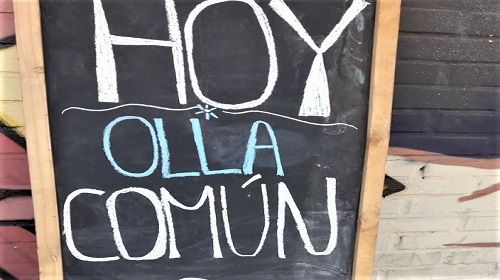 HOY
OLLA
COMÚN